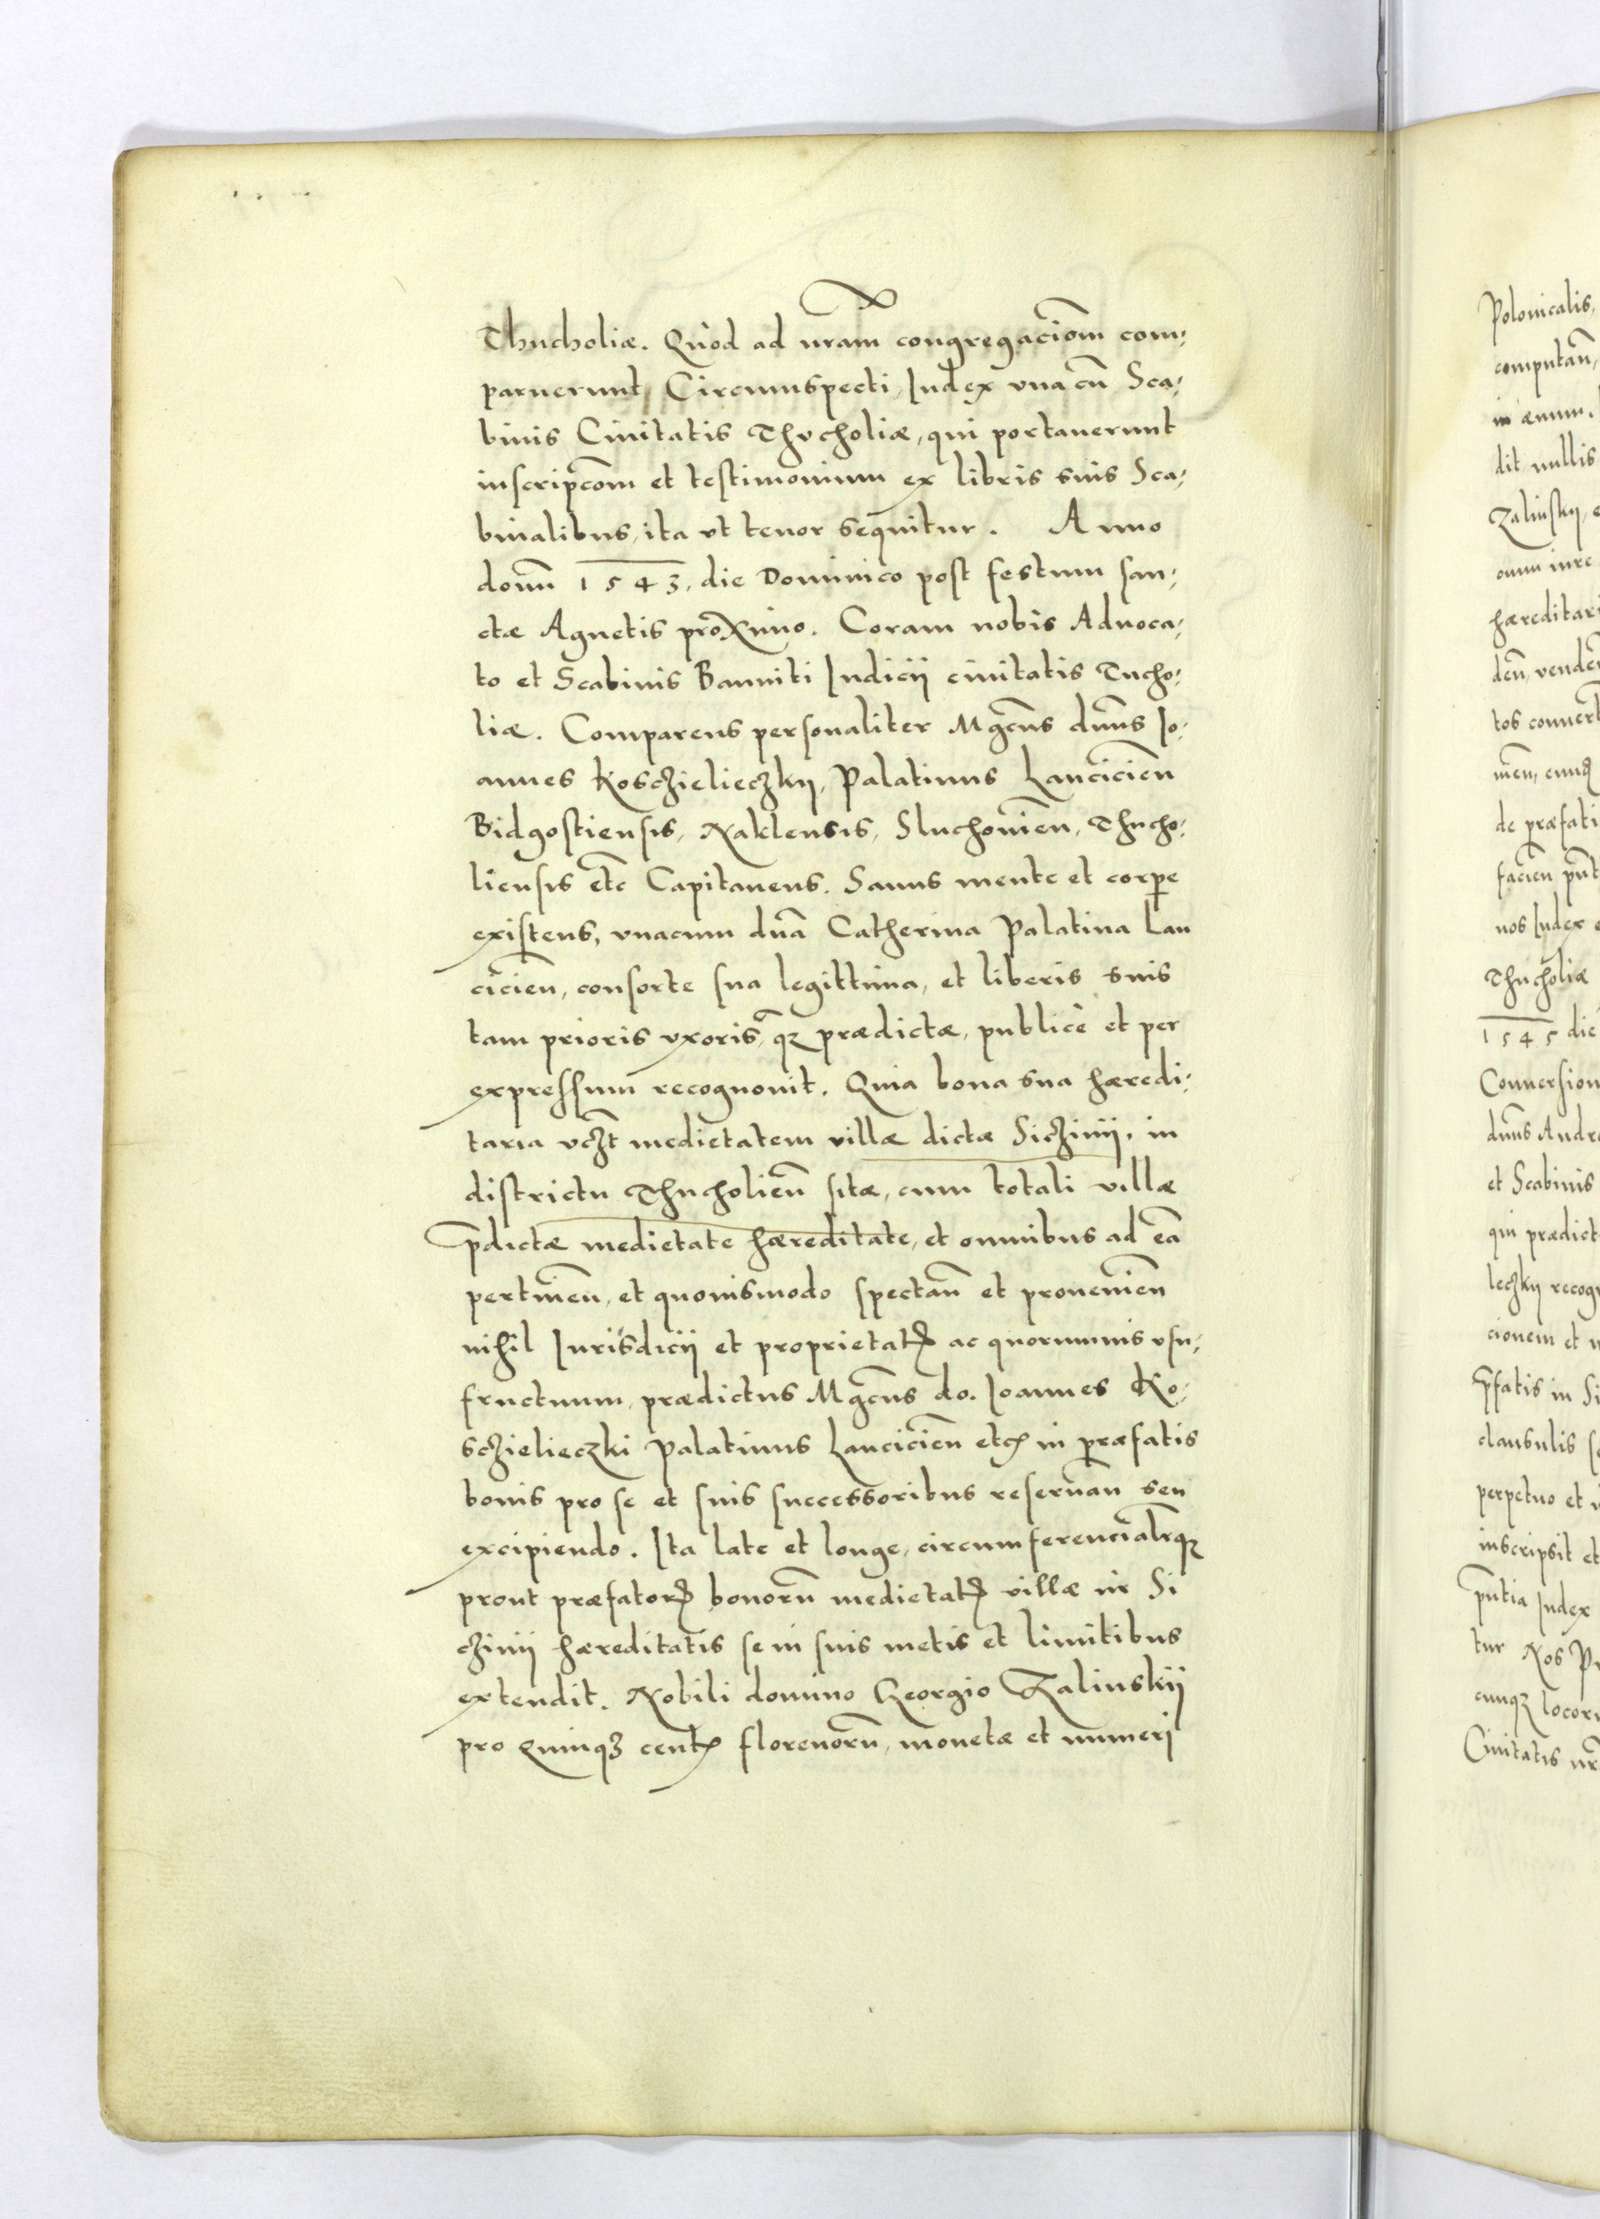 Thucholiæ. Quòd ad nram̄ congregaciom̄ com-
paruerunt Circumspecti, Iudex una cū Sca-
binis Ciuitatis Thucholiæ, qui portauerunt
inscripc̄om et testimonium ex libris suis Sca-
binalibus, ita ut tenor sequitur. Anno
domī 1543, die Dominico post festum san-
ctæ Agnetis proximo. Coram nobis Aduoca-
to et Scabinis Banniti Iudicii ciuitatis Tucho-
liæ. Comparens personaliter Mgcūs dnūs Io-
annes Koschielieczkij, Palatinus Lancicień
Bidgostiensis, Naklensis, Sluchouień, Thucho-
liensis etc̄ Capitaneus. Sanus mente et corpe
existens, unacum dnā Catherina Palatina Lan
cicień, consorte sua legittima, et liberis suis
tam prioris uxoris, q̄ꝫ prædictæ, publicè et per
expressum recognouit. Quia bona sua hæredi-
taria uc̄ꝫt medietatem uillæ dictæ Siczinij, in
districtu Thucholień sitæ, cum totali uillæ
p̄dictæ medietate hæreditate, et omnibus ad eā
pertinēn, et quouismodo spectan̄ et prouenień
nihil Iurisdicij et proprietatꝭ ac quorumuis usu-
fructuum, prædictus Mgcūs do. Ioannes Ko-
schielieczki Palatinus Lancicień etcꝭ in præfatis
bonis pro se et suis successoribus reseruan̄ seu
excipiendo. Ita late et longe, circumferencialr̄qꝫ
prout præfatorꝭ bonorū medietatꝭ uillæ in Si
czinij hæreditatis se in suis metis et limitibus
extendit. Nobili domino Georgio Zalinskij
pro Quinqꝫ centꝭ florenorū, monetæ et numeri
Polonicalis,
computan̄,
in æuum.
dit nullis
Zalinskij,
omni iure
hæreditari
tos conuert
de præfati
nos Iudex
Thucholiæ
1545 die
Conuersion
dnūs Andr
et Scabinis
qui prædict
leczkij recog
cionem et
p̄fatis in Si
clausulis
perpetuo et
inscripsit et
Iudex
tur Nos
cunqꝫ locor
Ciuitatis nr̄